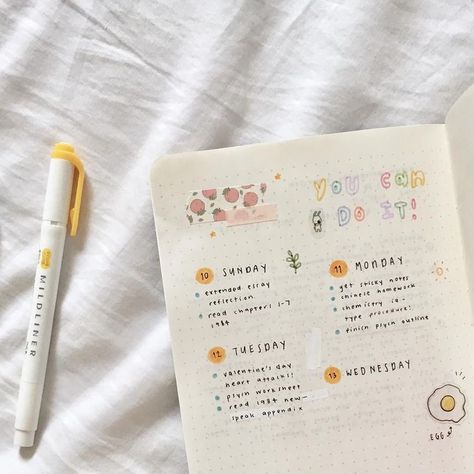 MILDLINER
YOU CAN
DO IT!
10 SUNDAY
extended essay
reflection
read chapters 1-7
1984
11 MONDAY
get sticky notes
chinese homework
chemistry ia -
type procedure!
finish psych outline
12 TUESDAY
valentine's day
heart attacks!
psych worksheet
read 1984 new-
speak appendix
13 WEDNESDAY
EGG